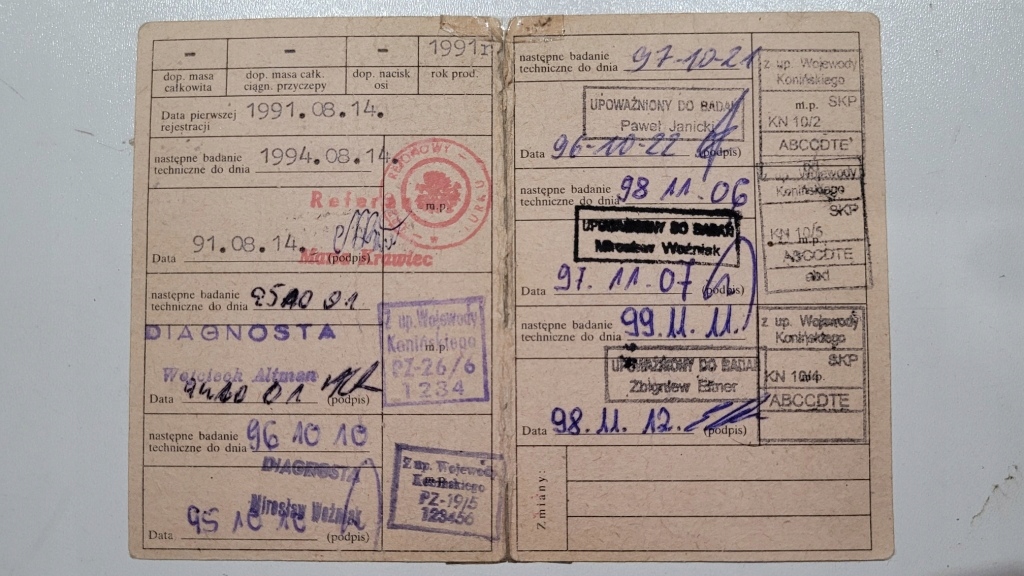 - - - 1991r
dop. masa całkowita
dop. masa całk. ciągn. przyczepy
dop. nacisk osi
rok prod.
Data pierwszej rejestracji 1991.08.14.
następne badanie techniczne do dnia 1994.08.14.
REJONOWY
m.p.
91.08.14.
Data (podpis)
następne badanie techniczne do dnia 95 10 01
DIAGNOSTA
Wojciech Altman
Data 94 10 01 (podpis)
Z up. Wojewody
Konińskiego
m.p.
PZ-26/6
1234
następne badanie techniczne do dnia 96 10 10
DIAGNOSTA
Mirosław Woźniak
Data 95 10 10 (podpis)
Z up. Wojewody
Konińskiego
PZ-19/5
123456
następne badanie techniczne do dnia 97-10-21
UPOWAŻNIONY DO BADAŃ
Paweł Janicki
Data 96-10-22 (podpis)
z up. Wojewody
Konińskiego
m.p. SKP
KN 10/2
ABCCDTE
następne badanie techniczne do dnia 98 11.06
UPOWAŻNIONY DO BADAŃ
Mirosław Woźniak
Data 97.11.07 (podpis)
Wojewody
Konińskiego
SKP
KN 10/5
m.p.
ABCCDTE
następne badanie techniczne do dnia 99.11.11.
UPOWAŻNIONY DO BADAŃ
Zbigniew
Data 98.11.12. (podpis)
z up. Wojewody
Konińskiego
SKP
KN 10/4 m.p.
ABCCDTE
Zmiany: